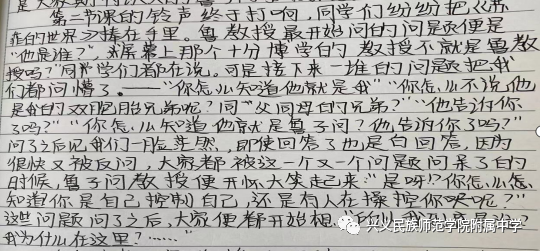 第二节课的铃声终于打响，同学们纷纷把《苏
菲的世界》捧在手里。鲁教授最开始问的问题便是
"他是谁？"大屏幕上那个十分博学的教授不就是鲁教
授吗？"同学们都在说。可是接下来一堆的问题把我
们都问懵了。——"你怎么知道他就是我""你怎么不说他
是我的双胞胎兄弟呢？同父同母的兄弟？""他告诉你
了吗？""你怎么知道他就是鲁子问？他告诉你了吗？"
问了之后见我们一脸茫然，即使回答了也是白回答，因为
很快又被反问，大家都被这一个又一个问题问呆了的
时候，鲁子问教授便开怀大笑起来："是呀！？你怎么
知道你是自己控制自己，还是有人在操控你呢？"
这些问题问了之后，大家便都开始想
我为什么在这里？……"
兴义民族师范学院附属中学